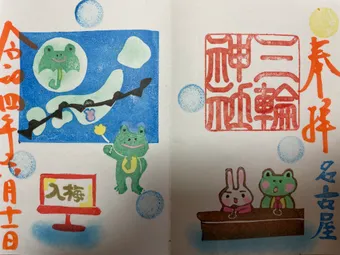 奉拝
三輪
神社
名古屋
入梅
令和四年六月十一日